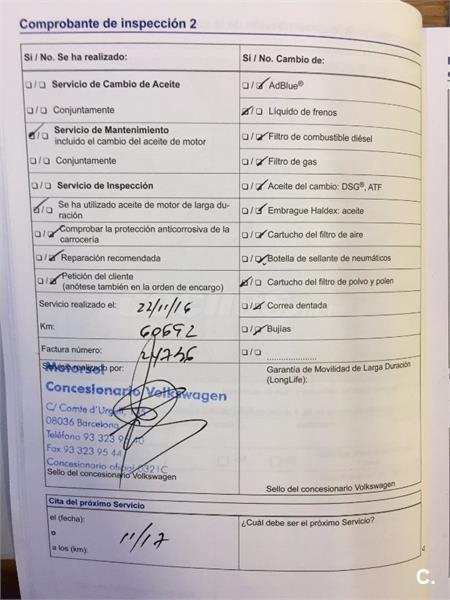 Comprobante de inspección 2
Si / No. Se ha realizado:
Si / No. Cambio de:
Servicio de Cambio de Aceite
AdBlue®
Conjuntamente
Líquido de frenos
Servicio de Mantenimiento
incluido el cambio del aceite de motor
Filtro de combustible diésel
Conjuntamente
Filtro de gas
Servicio de Inspección
Aceite del cambio: DSG®, ATF
Se ha utilizado aceite de motor de larga du-
ración
Embrague Haldex: aceite
Comprobar la protección anticorrosiva de la
carrocería
Cartucho del filtro de aire
Reparación recomendada
Botella de sellante de neumáticos
Petición del cliente
(anótese también en la orden de encargo)
Cartucho del filtro de polvo y polen
Servicio realizado el: 22/11/16
Correa dentada
Km: 60692
Bujías
Factura número: 24756
Servicio realizado por:
Garantía de Movilidad de Larga Duración
(LongLife):
Motorsol
Concesionario Volkswagen
C/ Comte d'Urgell,
08036 Barcelona
Teléfono 93 323 9
Fax 93 323 95 44
Concesionario oficial 0321C
Sello del concesionario Volkswagen
Sello del concesionario Volkswagen
Cita del próximo Servicio
el (fecha):
¿Cuál debe ser el próximo Servicio?
o
11/17
a los (km):
4
C.